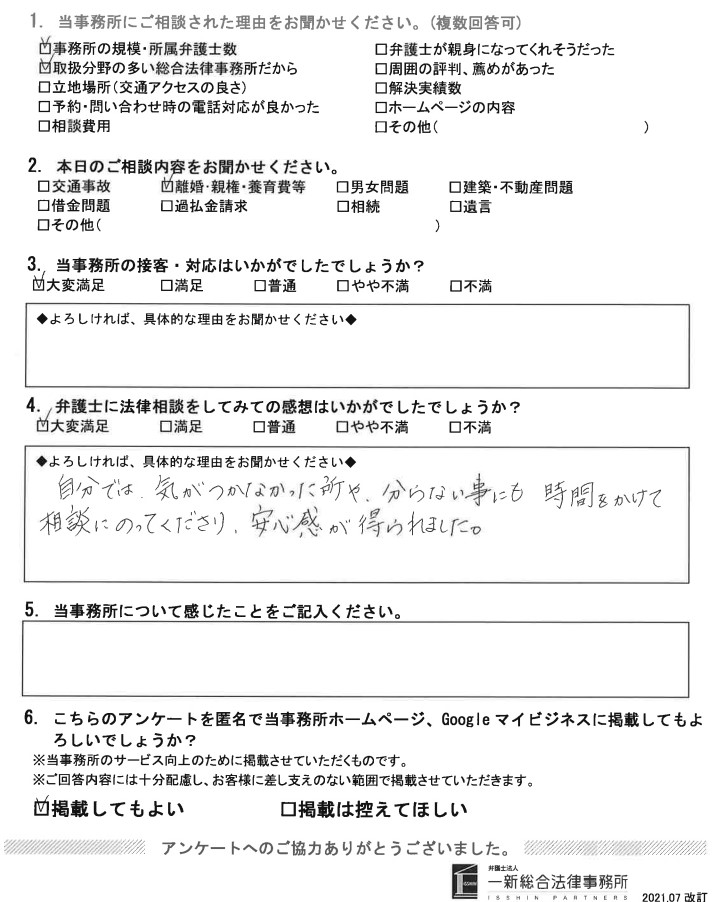 1. 当事務所にご相談された理由をお聞かせください。(複数回答可)
☑事務所の規模・所属弁護士数 □弁護士が親身になってくれそうだった
☑取扱分野の多い総合法律事務所だから □周囲の評判、薦めがあった
□立地場所(交通アクセスの良さ) □解決実績数
□予約・問い合わせ時の電話対応が良かった □ホームページの内容
□相談費用 □その他( )
2. 本日のご相談内容をお聞かせください。
□交通事故 ☑離婚・親権・養育費等 □男女問題 □建築・不動産問題
□借金問題 □過払金請求 □相続 □遺言
□その他( )
3. 当事務所の接客・対応はいかがでしたでしょうか？
☑大変満足 □満足 □普通 □やや不満 □不満
◆よろしければ、具体的な理由をお聞かせください◆
4. 弁護士に法律相談をしてみての感想はいかがでしたでしょうか？
☑大変満足 □満足 □普通 □やや不満 □不満
◆よろしければ、具体的な理由をお聞かせください◆
自分では、気がつかなかった所や、分らない事にも 時間をかけて
相談にのってくださり、安心感が得られました。
5. 当事務所について感じたことをご記入ください。
6. こちらのアンケートを匿名で当事務所ホームページ、Google マイビジネスに掲載してもよ
ろしいでしょうか？
※当事務所のサービス向上のために掲載させていただくものです。
※ご回答内容には十分配慮し、お客様に差し支えのない範囲で掲載させていただきます。
☑掲載してもよい □掲載は控えてほしい
アンケートへのご協力ありがとうございました。
弁護士法人
ISSHIN 一新総合法律事務所
ISSHIN PARTNERS 2021.07 改訂